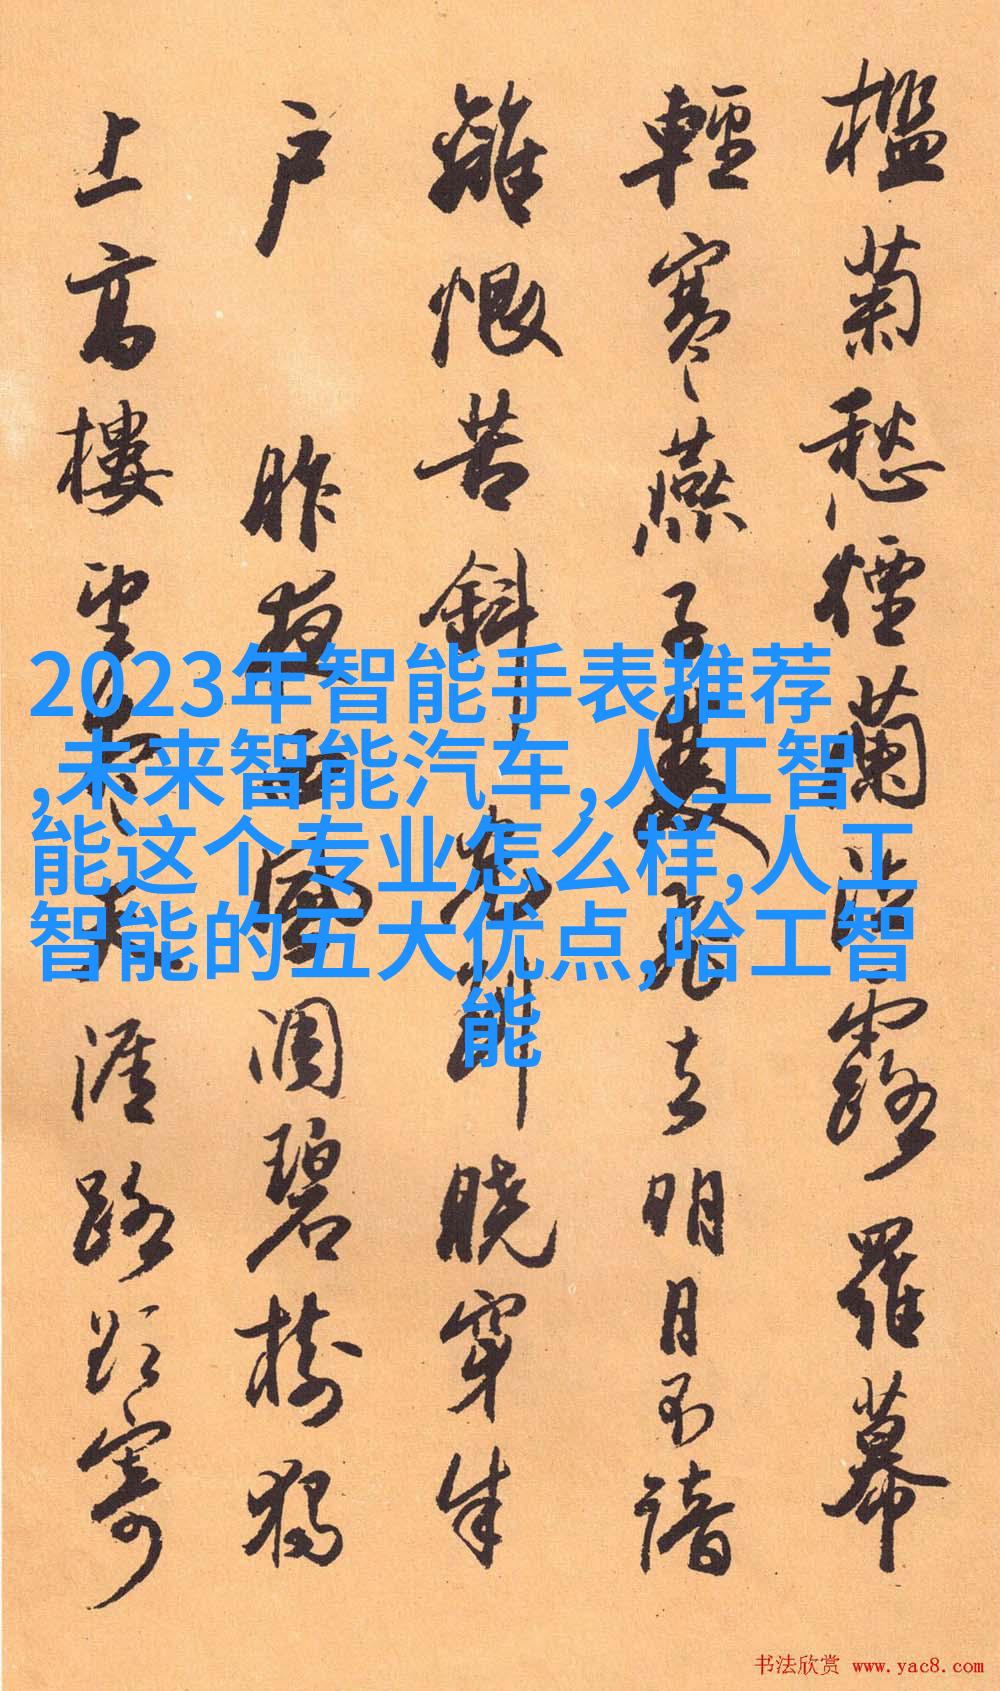 檻菊愁煙蘭泣露羅幕
輕寒燕子雙飛去明月不諳
離恨苦斜光到曉穿朱
户 昨夜西風凋碧樹獨
上高樓望盡天涯路欲寄
2023年智能手表推荐
,未来智能汽车,人工智
能这个专业怎么样,人工
智能的五大优点,哈工智
能
书法欣赏 www.yac8.com